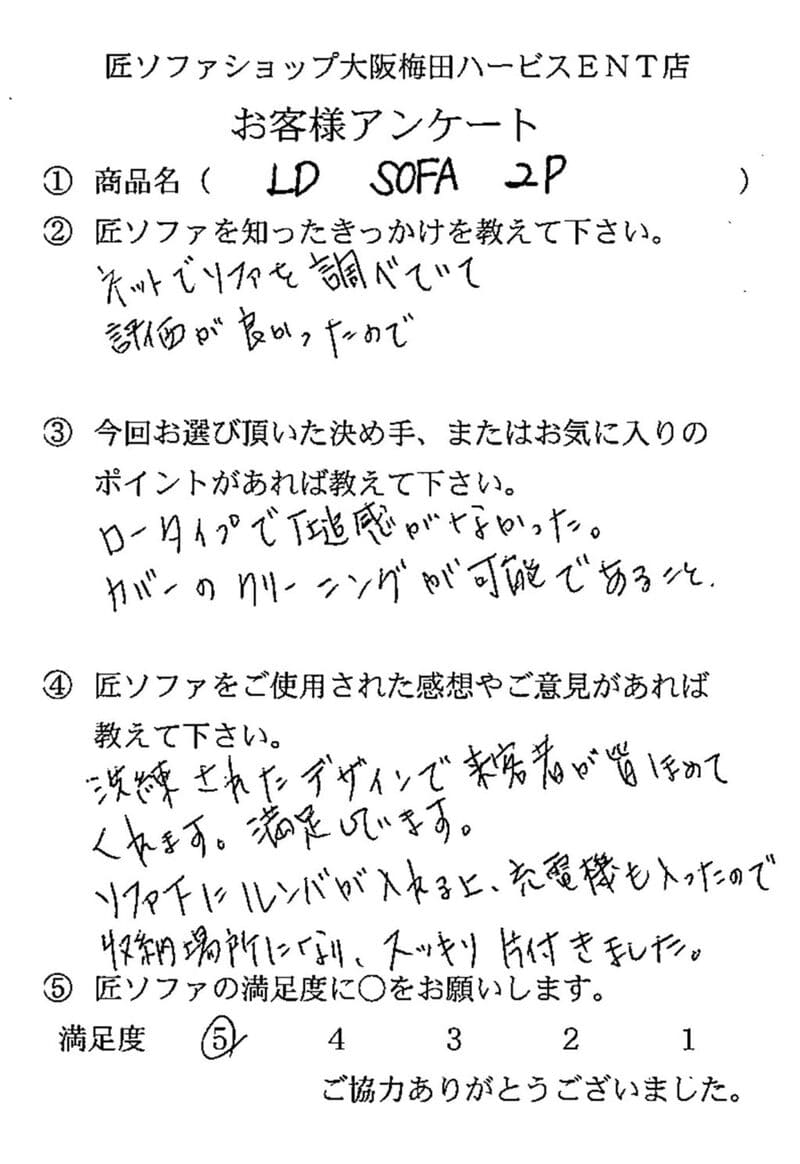 匠ソファショップ大阪梅田ハービスENT店
お客様アンケート
① 商品名( LD SOFA 2P )
② 匠ソファを知ったきっかけを教えて下さい。
ネットでソファを調べていて
評価が良かったので
③ 今回お選び頂いた決め手、またはお気に入りの
ポイントがあれば教えて下さい。
ロータイプで圧迫感がなかった。
カバーのクリーニングが可能であること.
④ 匠ソファをご使用された感想やご意見があれば
教えて下さい。
洗練されたデザインで来客者が皆ほめて
くれます。満足しています。
ソファ下にルンバが入れる上、充電機も入ったので
収納場所になり、スッキリ片付きました。
⑤ 匠ソファの満足度に○をお願いします。
満足度 5 4 3 2 1
ご協力ありがとうございました。